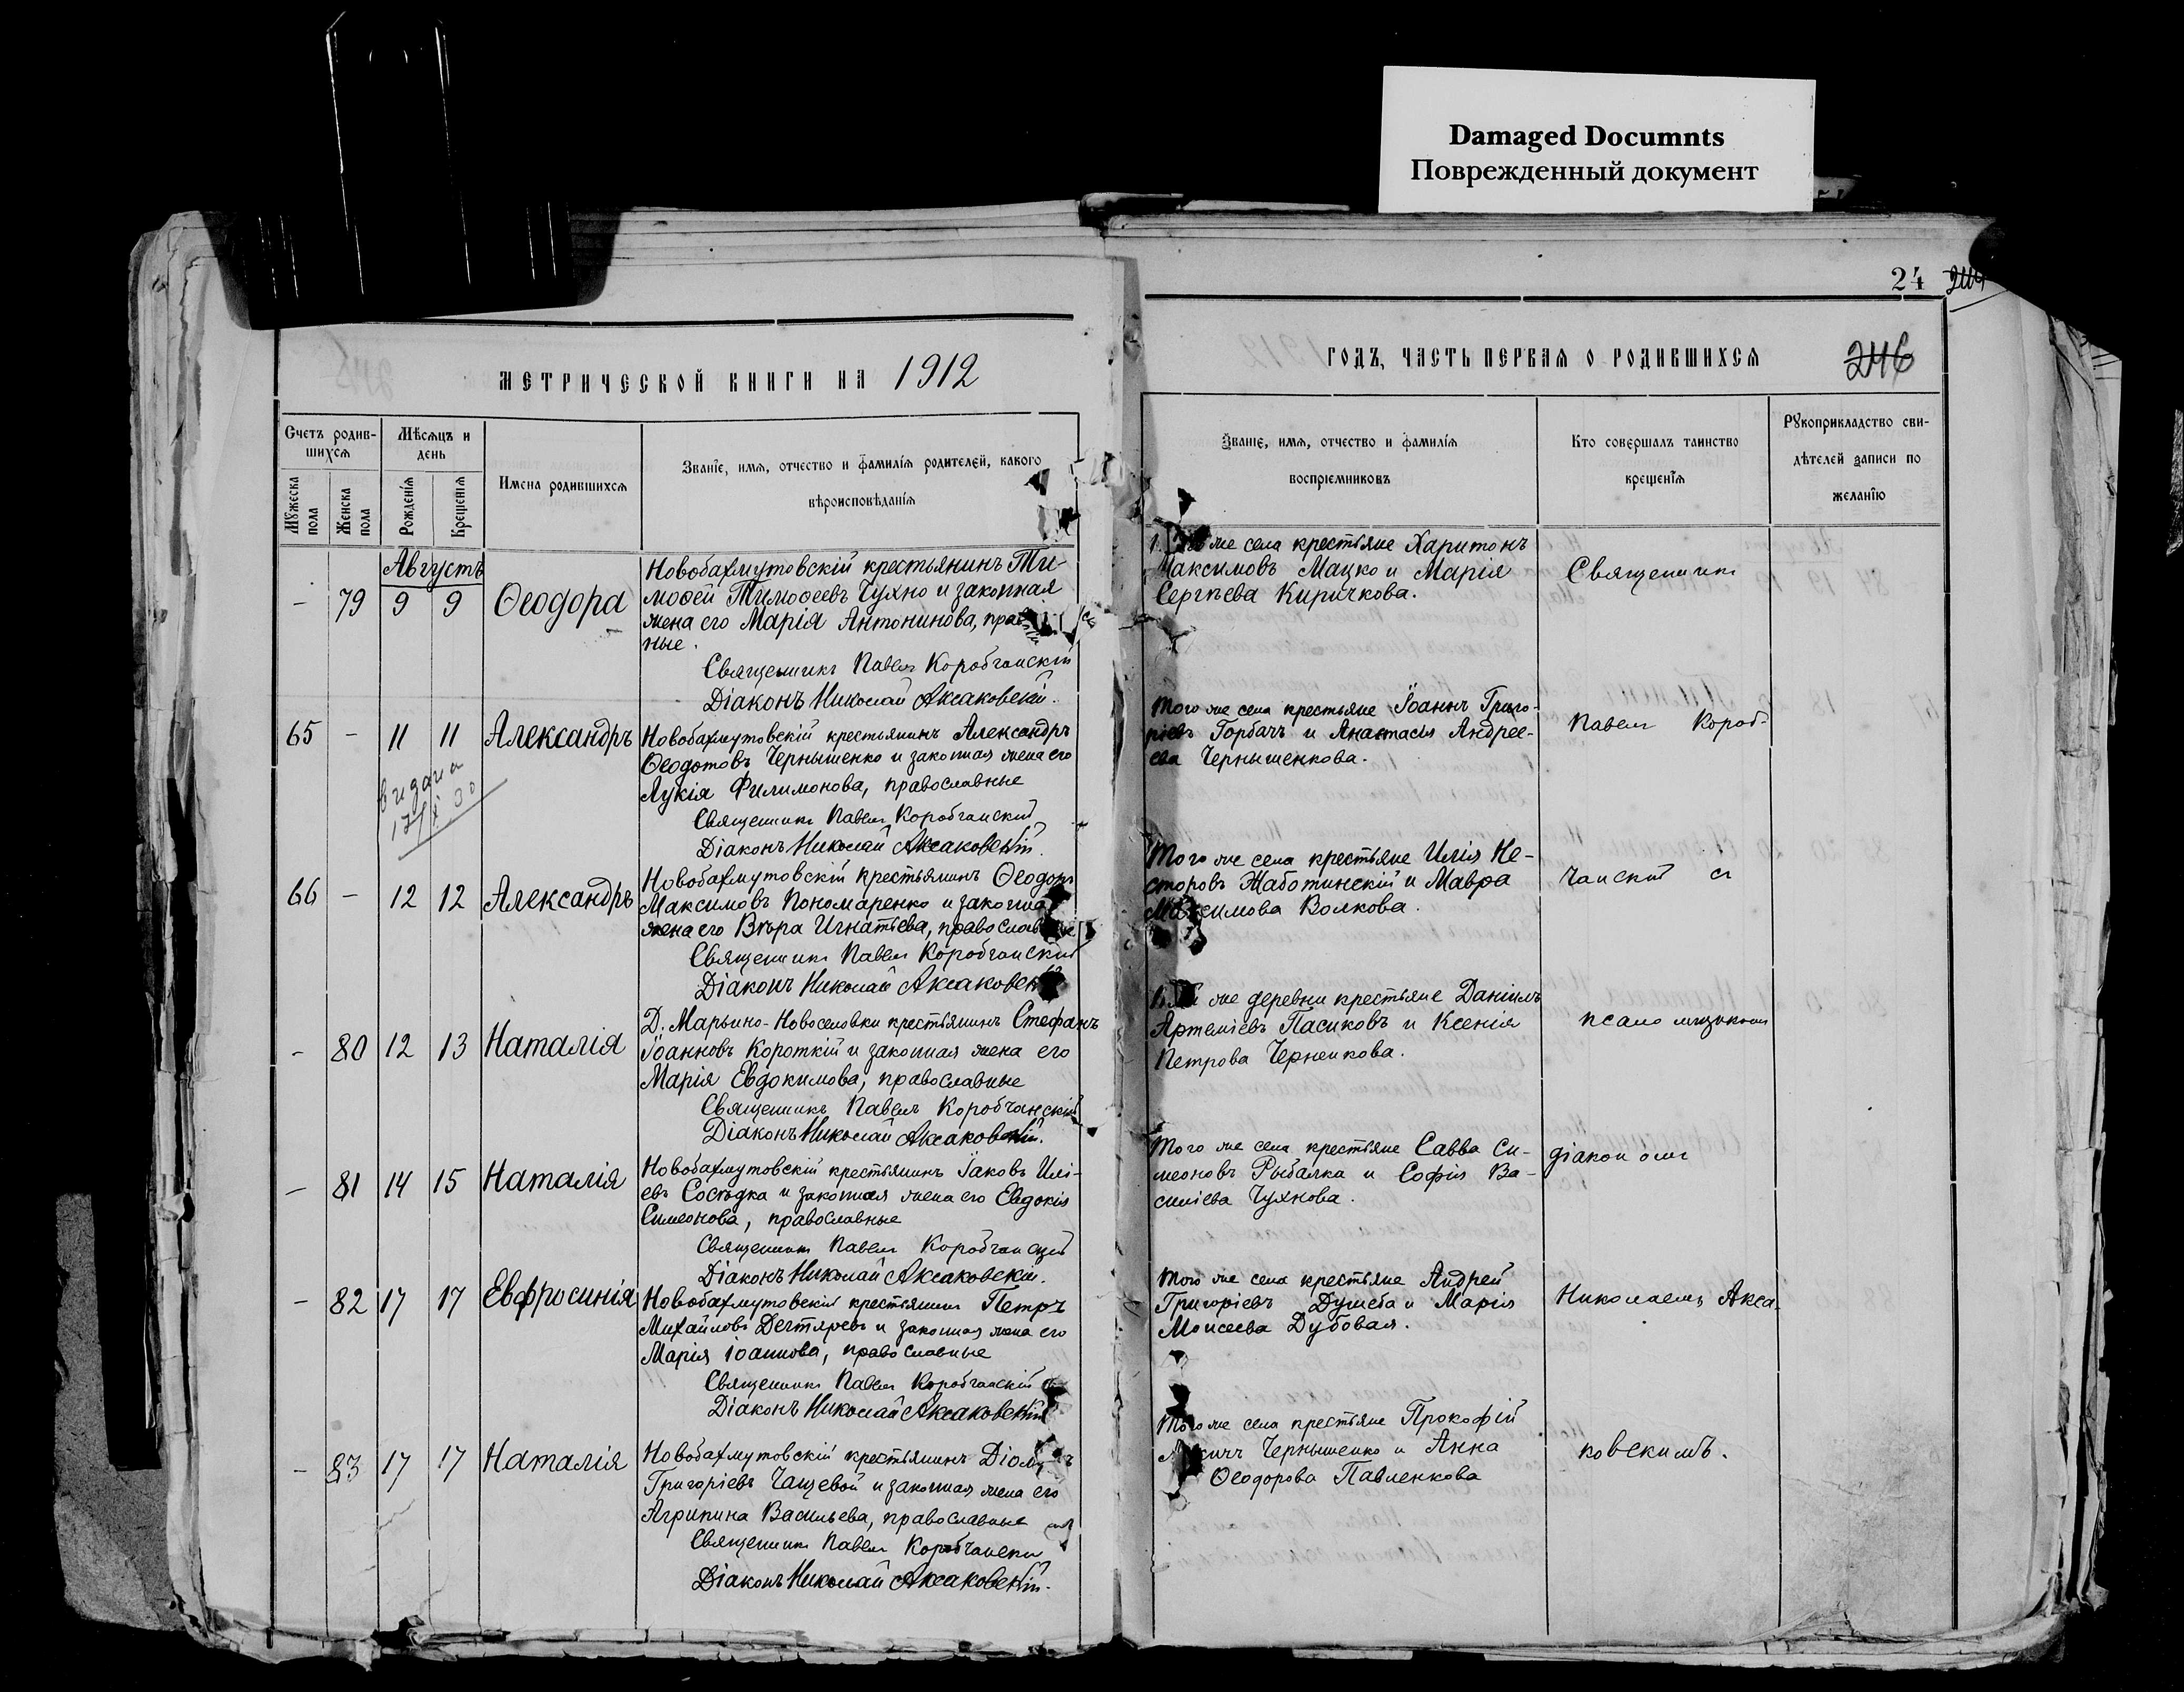 Damaged Documnts
Поврежденный документ
24
246
МЕТРИЧЕСКОЙ КНИГИ НА 1912
ГОДЪ, ЧАСТЬ ПЕРВАЯ О РОДИВШИХСЯ
Счетъ родив-
шихся
Мѣсяцъ и
день
Мужеска пола
Женска пола
Рожденія
Крещенія
Имена родившихся
Званіе, имя, отчество и фамилія родителей, какого
вѣроисповѣданія
Званіе, имя, отчество и фамилія
воспріемниковъ
Кто совершалъ таинство
крещенія
Рукоприкладство сви-
дѣтелей записи по
желанію
Августъ
- 79 9 9 Ѳеодора
Новобахмутовскій крестьянинъ Ти-
моѳей Тимоѳеевъ Чухно и законная
жена его Марія Антонинова, прав
ные.
Священникъ Павелъ Коробчанскій
Діаконъ Николай Аксаковскій.
же села крестьяне Харитонъ
Максимовъ Мацко и Марія
Сергѣева Киричкова.
Священникъ
65 - 11 11 Александръ
Новобахмутовскій крестьянинъ Александръ
Ѳеодотовъ Чернышенко и законная жена его
Лукія Филимонова, православные
Священникъ Павелъ Коробчанскій
Діаконъ Николай Аксаковскій.
Того же села крестьяне Іоаннъ Григо-
ріевъ Горбачъ и Анастасія Андрее-
ва Чернышенкова.
Павелъ Короб-
66 - 12 12 Александръ
Новобахмутовскій крестьянинъ Ѳеодоръ
Максимовъ Пономаренко и законная
жена его Вѣра Игнатьева, православные
Священникъ Павелъ Коробчанскій
Діаконъ Николай Аксаковскій
Того же села крестьяне Илія Не-
сторовъ Жаботинскій и Мавра
Максимова Волкова.
чанскій съ
- 80 12 13 Наталія
Д. Марьино-Новоселовки крестьянинъ Стефанъ
Іоанновъ Короткій и законная жена его
Марія Евдокимова, православные
Священникъ Павелъ Коробчанскій
Діаконъ Николай Аксаковскій.
же деревни крестьяне Даніилъ
Артеміевъ Пасиковъ и Ксенія
Петрова Черненкова.
псаломщикомъ
- 81 14 15 Наталія
Новобахмутовскій крестьянинъ Іаковъ Илі-
евъ Сосѣдка и законная жена его Евдокія
Симеонова, православные
Священникъ Павелъ Коробчанскій
Діаконъ Николай Аксаковскій.
Того же села крестьяне Савва Си-
меоновъ Рыбалка и Софія Ва-
силіева Чухнова.
діакономъ
- 82 17 17 Евфросинія
Новобахмутовскій крестьянинъ Петръ
Михайловъ Дегтяревъ и законная жена его
Марія Іоаннова, православные
Священникъ Павелъ Коробчанскій
Діаконъ Николай Аксаковскій
Того же села крестьяне Андрей
Григоріевъ Душеба и Марія
Моисеева Дубовая.
Николаемъ Акса-
- 83 17 17 Наталія
Новобахмутовскій крестьянинъ
Григоріевъ Чащевой и законная жена его
Агрипина Васильева, православные
Священникъ Павелъ Коробчанскій
Діаконъ Николай Аксаковскій.
Того же села крестьяне Прокофій
Чернышенко и Анна
Ѳеодорова Павленкова
ковскимъ.